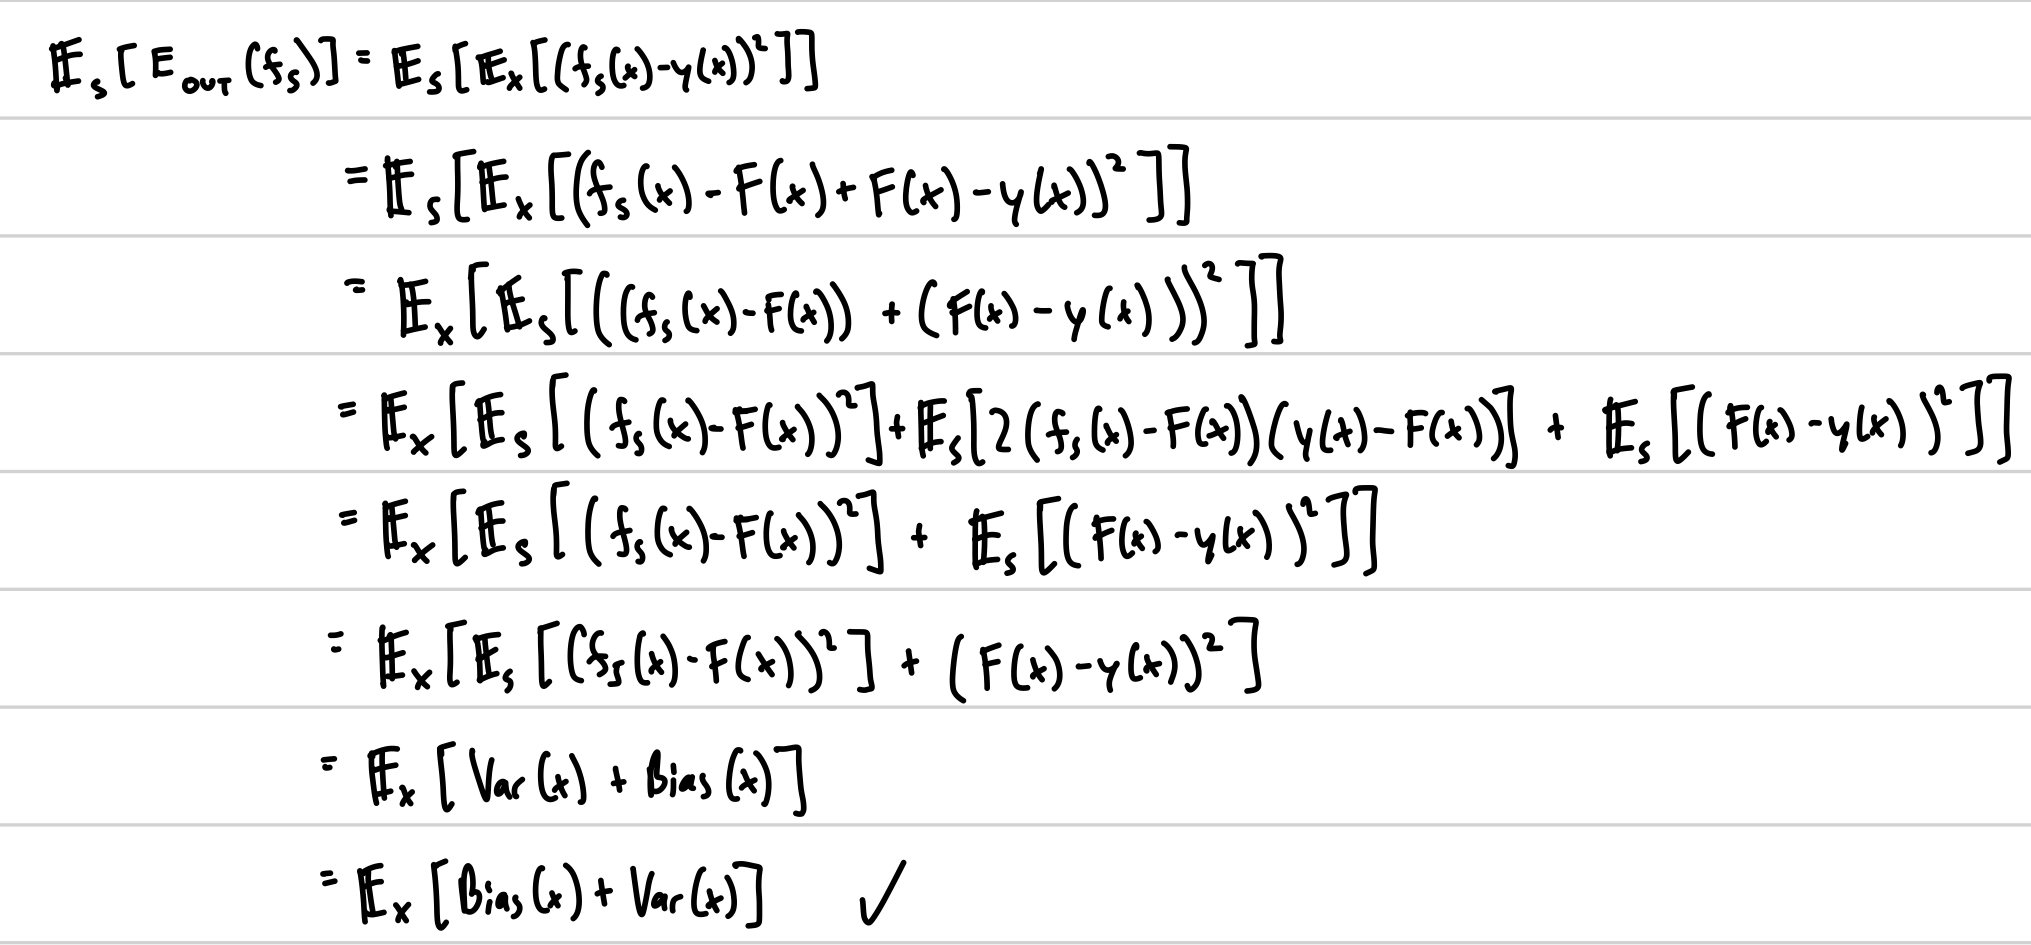 𝔼ₛ[E_OUT(fₛ)] = 𝔼ₛ[𝔼ₓ[(fₛ(x)-y(x))²]]
= 𝔼ₛ[𝔼ₓ[(fₛ(x)-F(x)+F(x)-y(x))²]]
= 𝔼ₓ[𝔼ₛ[((fₛ(x)-F(x)) + (F(x)-y(x)))²]]
= 𝔼ₓ[𝔼ₛ[(fₛ(x)-F(x))²]+𝔼ₛ[2(fₛ(x)-F(x))(y(x)-F(x))] + 𝔼ₛ[(F(x)-y(x))²]]
= 𝔼ₓ[𝔼ₛ[(fₛ(x)-F(x))²] + 𝔼ₛ[(F(x)-y(x))²]]
= 𝔼ₓ[𝔼ₛ[(fₛ(x)-F(x))²] + (F(x)-y(x))²]
= 𝔼ₓ[Var(x) + Bias(x)]
= 𝔼ₓ[Bias(x) + Var(x)] ✓